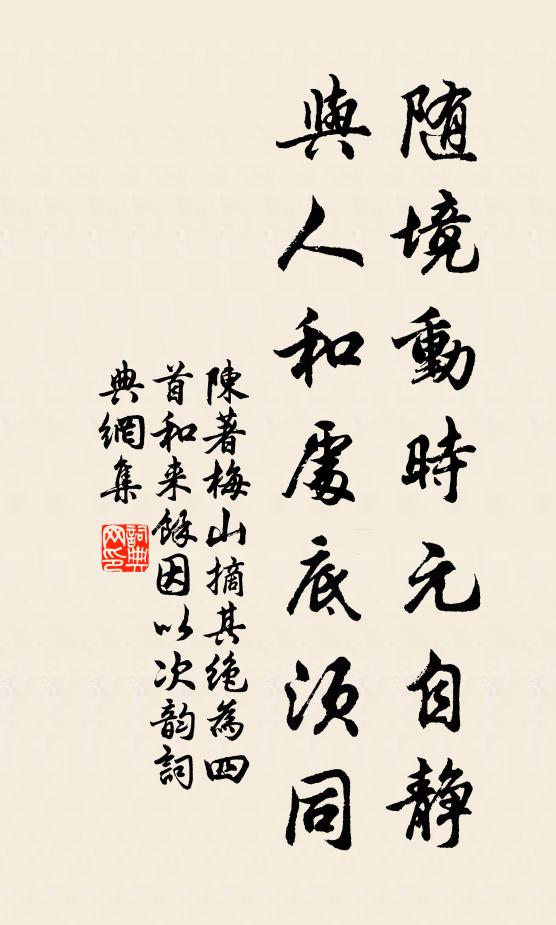 随境動時元自静
與人和處底須同
陳著梅山摘其絶為四
首和来餘因以次韵詞
典網集
詞典
网印